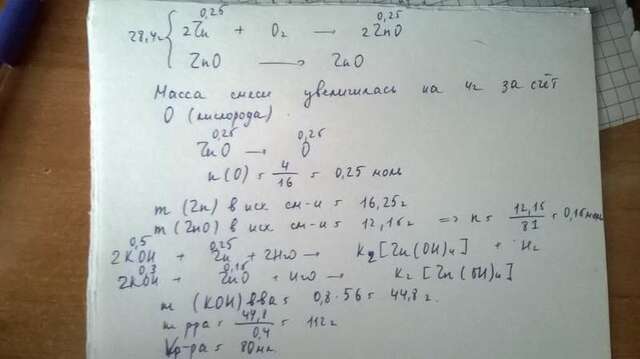 0,25 0,25
28,4г { 2Zn + O2 → 2ZnO
ZnO → ZnO
Масса смеси увеличилась на 4г за счёт
O (кислорода)
0,25 0,25
ZnO → O
n(O) = 4/16 = 0,25 моль
m (Zn) в исх см-и = 16,25г
m (ZnO) в исх см-и = 12,15г => n = 12,15/81 = 0,15 моль
0,5 0,25
2KOH + Zn + 2H2O → K2[Zn(OH)4] + H2
0,3 0,15
2KOH + ZnO + H2O → K2[Zn(OH)4]
m (KOH) в-ва = 0,8 · 56 = 44,8 г.
m р-ра = 44,8/0,4 = 112г
Vр-ра = 80мл.